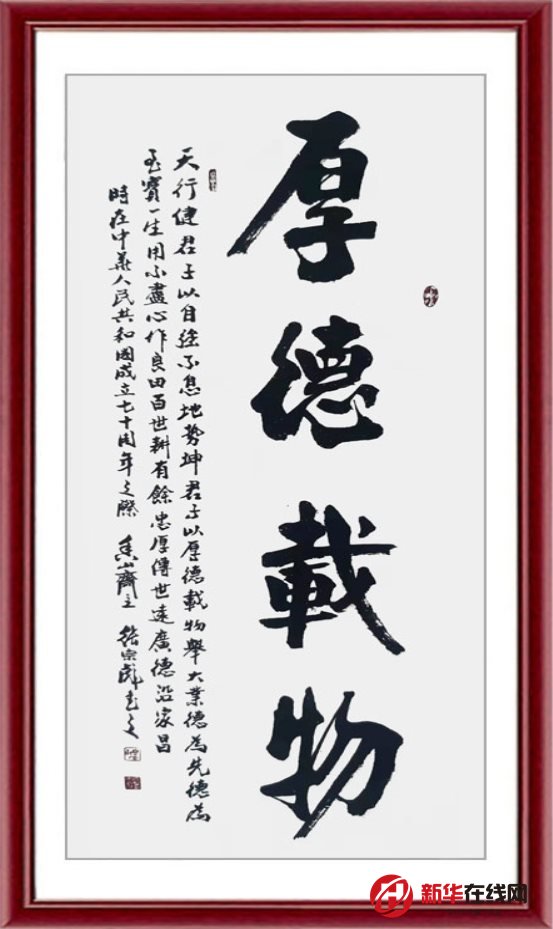 厚德載物
天行健君子以自強不息地勢坤君子以厚德載物舉大業德為先德為
至寶一生用不盡心作良田百世耕有餘忠厚傳世遠廣德沿家昌
時在中華人民共和國成立七十周年之際 香山齋主 徐宗彪書之
新华在线网